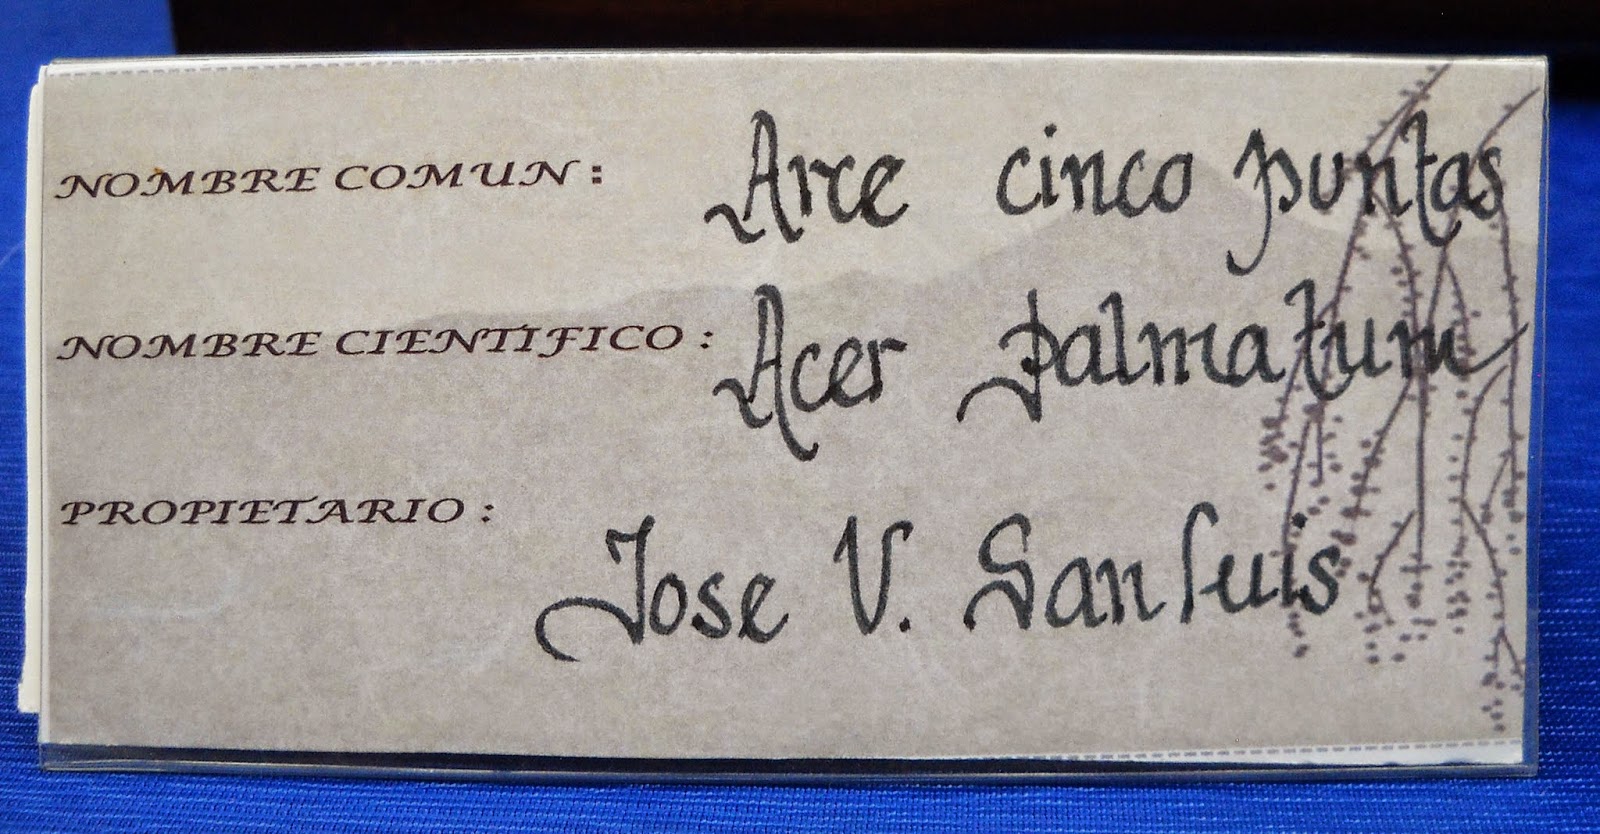 NOMBRE COMUN : Arce cinco puntas
NOMBRE CIENTIFICO : Acer palmatum
PROPIETARIO : Jose V. Sanluis